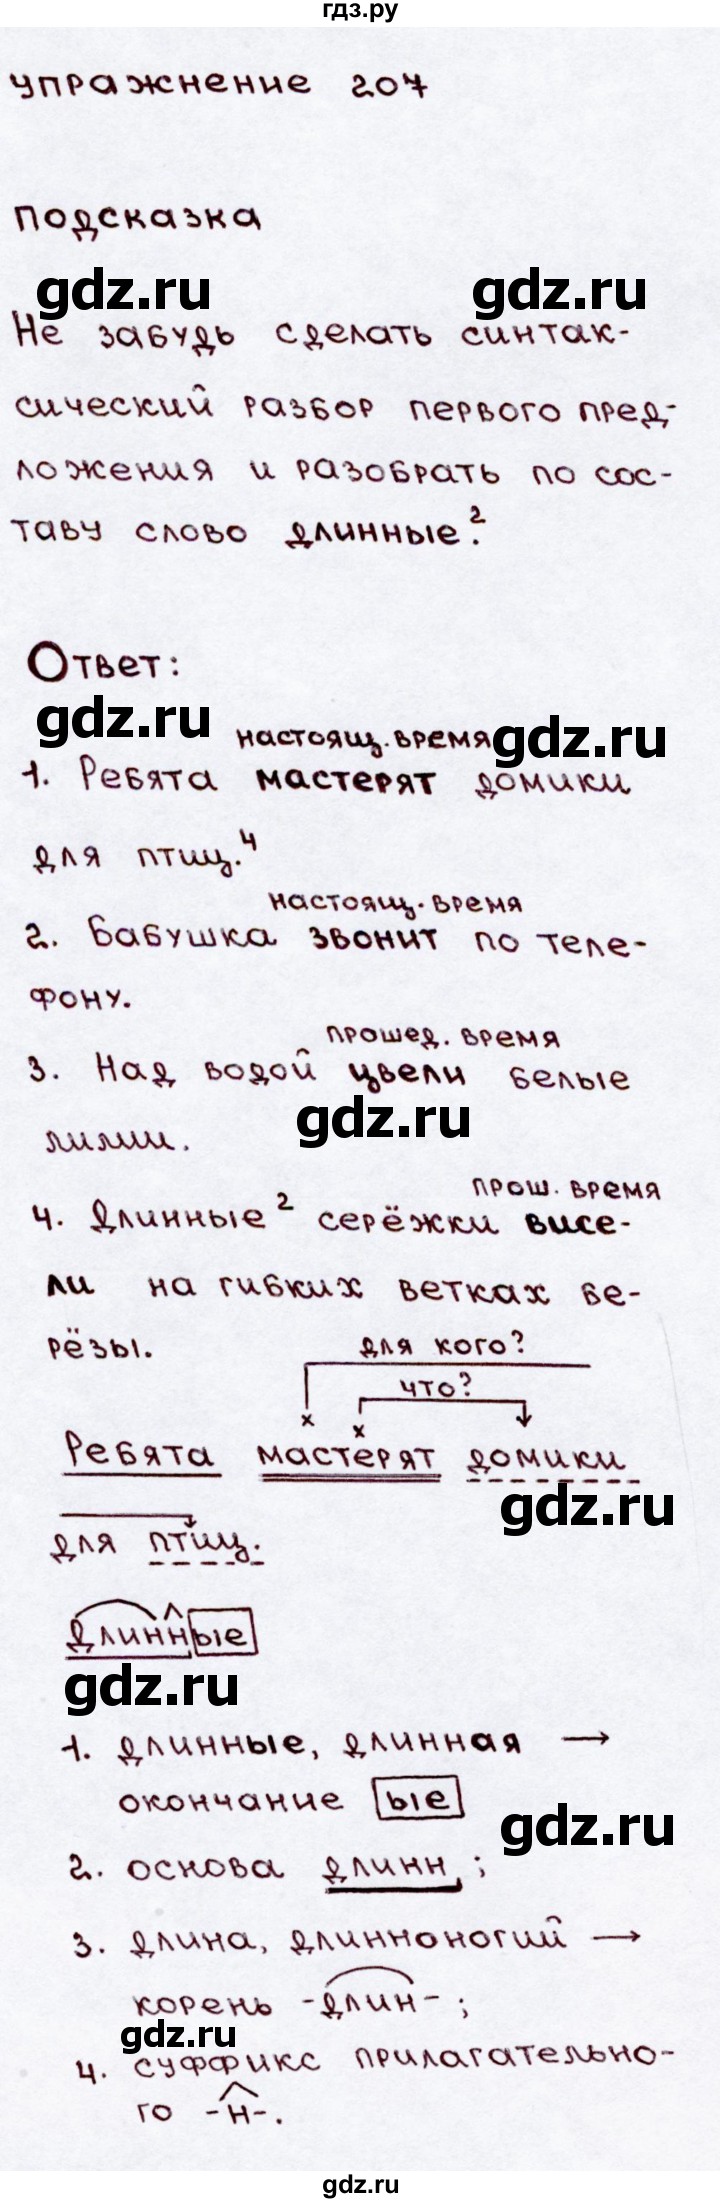 гдз.ру
упражнение 207
подсказка
gdz.ru gdz.ru
Не забудь сделать синтак-
сический разбор первого пред-
ложения и разобрать по сос-
таву слово длинные².
Ответ:
gdz.ru
настоящ. время gdz.ru
1. Ребята мастерят домики
для птиц.⁴
настоящ. время
2. Бабушка звонит по теле-
фону.
прошед. время
3. Над водой цвели белые
gdz.ru
лилии.
прош. время
4. Длинные² серёжки висе-
ли на гибких ветках бе-
рёзы.
для кого?
что?
х х
Ребята мастерят домики
gdz.ru
для птиц.
длинные
gdz.ru
1. длинные, длинная →
окончание ые
gdz.ru
2. основа длинн;
3. длина, длинноногий →
корень -длин-;
gdz.ru
4. суффикс прилагательно-
го -н-.
gdz.ru